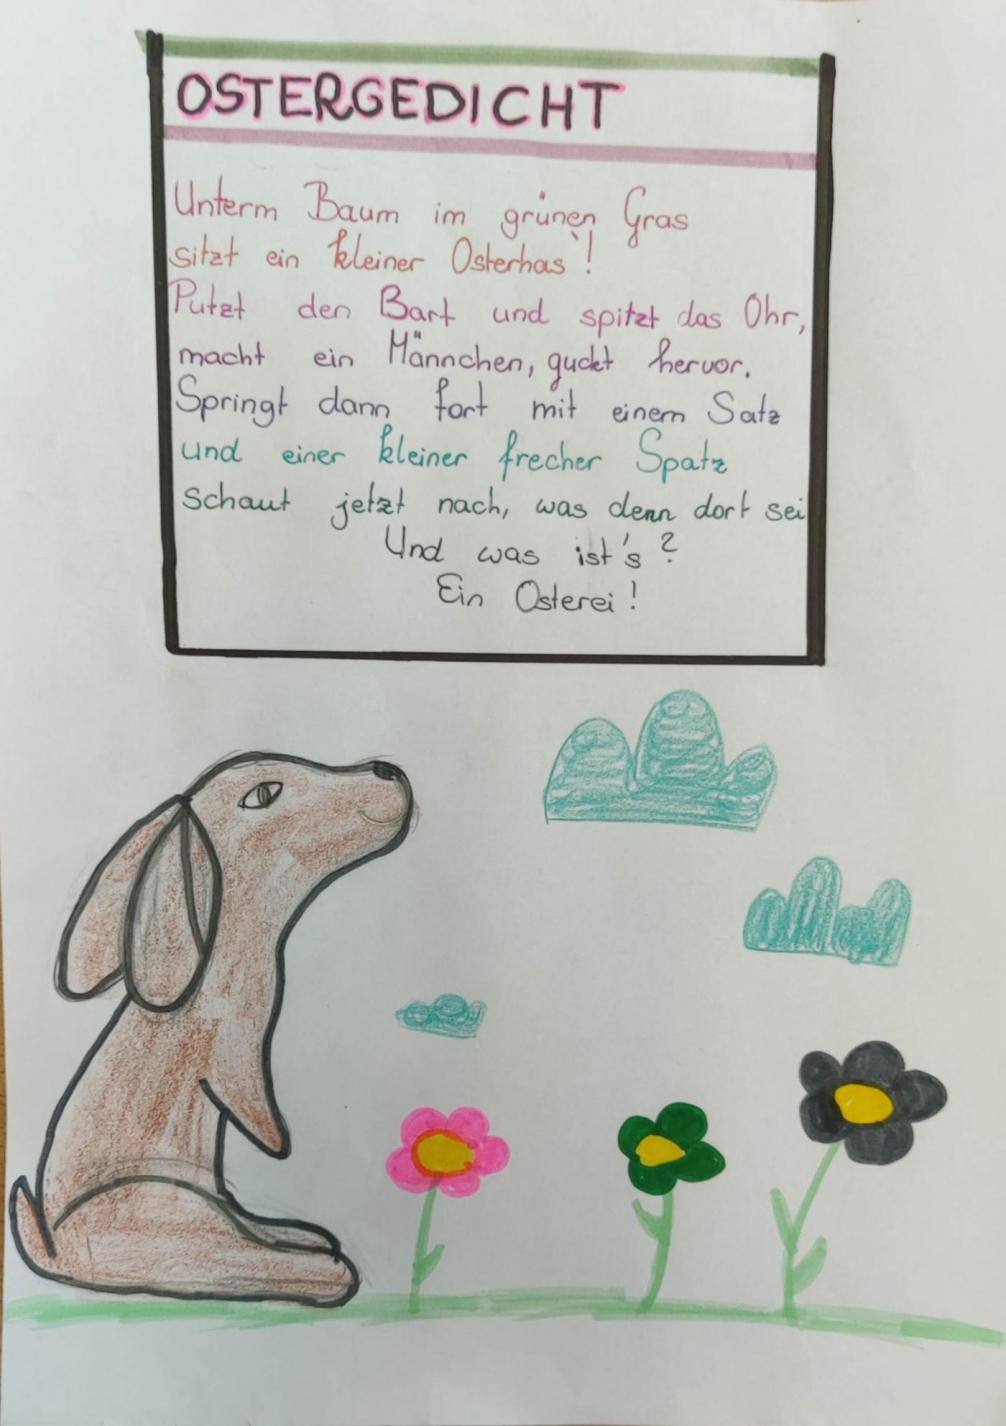 OSTERGEDICHT
Unterm Baum im grünen Gras
sitzt ein kleiner Osterhas'!
Putzt den Bart und spitzt das Ohr,
macht ein Männchen, guckt hervor.
Springt dann fort mit einem Satz
und einer kleiner frecher Spatz
schaut jetzt nach, was denn dort sei
Und was ist's?
Ein Osterei!